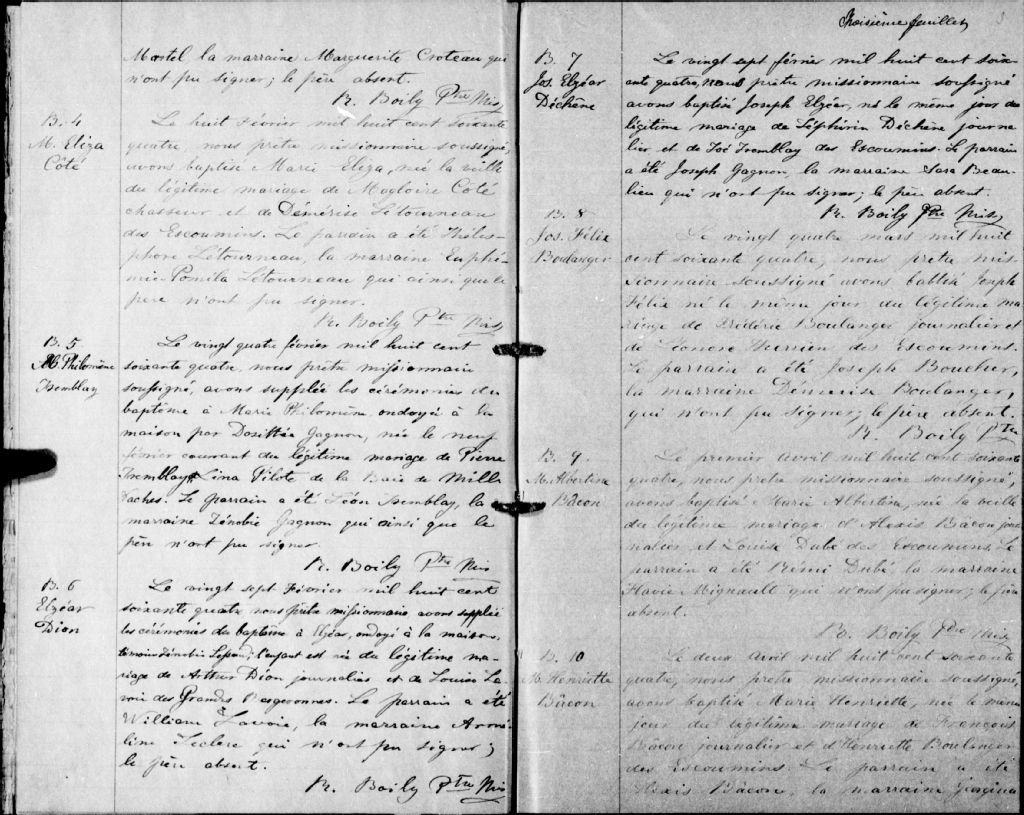 Martel la marraine Marguerite Croteau qui
n'ont pu signer; le père absent.
R. Boily Ptre Miss
B. 4
M. Eliza
Côté
Le huit Février mil huit cent soixante
quatre, nous prêtre missionnaire soussigné,
avons baptisé Marie Eliza, née la veille
du légitime mariage de Magloire Côté
chasseur et de Démérise Létourneau
des Escoumins. Le parrain a été Théles-
phore Létourneau, la marraine Euphé-
mie Pomila Létourneau qui ainsi que le
père n'ont pu signer.
R. Boily Ptre Miss
B. 5
M. Philomène
Tremblay
Le vingt quatre février mil huit cent
soixante quatre, nous prêtre missionnaire
soussigné, avons supplée les cérémonies du
baptême à Marie Philomène, ondoyé à la
maison par Dosithée Gagnon, née le neuf
février courant du légitime mariage de Pierre
Tremblay & Lina Pilote de la Baie de Mille
Vaches. Le parrain a été Léon Tremblay, la
marraine Zénobie Gagnon qui ainsi que le
père n'ont pu signer.
R. Boily Ptre Miss
B. 6
Elzéar
Dion
Le vingt sept Février mil huit cent
soixante quatre nous prêtre missionnaire avons supplée
les cérémonies du baptême à Elzéar, ondoyé à la maison,
témoin Zénobie l'enfant est née du légitime ma-
riage de Arthur Dion journalier et de Louise La-
voie des Grandes Bergeronnes. Le parrain a été
William Lavoie, la marraine Armé-
line Leclerc qui n'ont pu signer;
le père absent.
R. Boily Ptre Miss
Troisième feuillet
B. 7
Jos. Elzéar
Déchêne
Le vingt sept février mil huit cent soix-
ante quatre, nous prêtre missionnaire soussigné
avons baptisé Joseph Elzéar, né le même jour du
légitime mariage de Zéphirin Déchêne journa-
lier et de Zoé Tremblay des Escoumins. Le parrain
a été Joseph Gagnon, la marraine Sara Beau-
lieu qui n'ont pu signer; le père absent.
R. Boily Ptre Miss
B. 8
Jos. Félix
Boulanger
Le vingt quatre mars mil huit
cent soixante quatre, nous prêtre mis-
sionnaire soussigné avons babtisé Joseph
Félix né le même jour du légitime ma-
riage de Frédéric Boulanger journalier et
de Léonore Therrien des Escoumins.
Le parrain a été Joseph Boucher,
la marraine Démerise Boulanger,
qui n'ont pu signer; le père absent.
R. Boily Ptre
B. 9
M. Albertine
Bâcon
Le premier avril mil huit cent soixante
quatre, nous prêtre missionnaire soussigné,
avons baptisé Marie Albertine, née la veille
du légitime mariage d'Alexis Bâcon jour-
nalier et Louise Dubé des Escoumins. Le
parrain a été Rémi Dubé, la marraine
Flavie Mignault qui n'ont pu signer; le père
absent.
R. Boily Ptre Miss
B. 10
M. Henriette
Bâcon
Le deux avril mil huit cent soixante
quatre, nous prêtre missionnaire soussigné,
avons baptisé Marie Henriette, née le même
jour du légitime mariage de François
Bâcon journalier et d'Henriette Boulanger
des Escoumins. Le parrain a été
Alexis Bâcon, la marraine Georgina